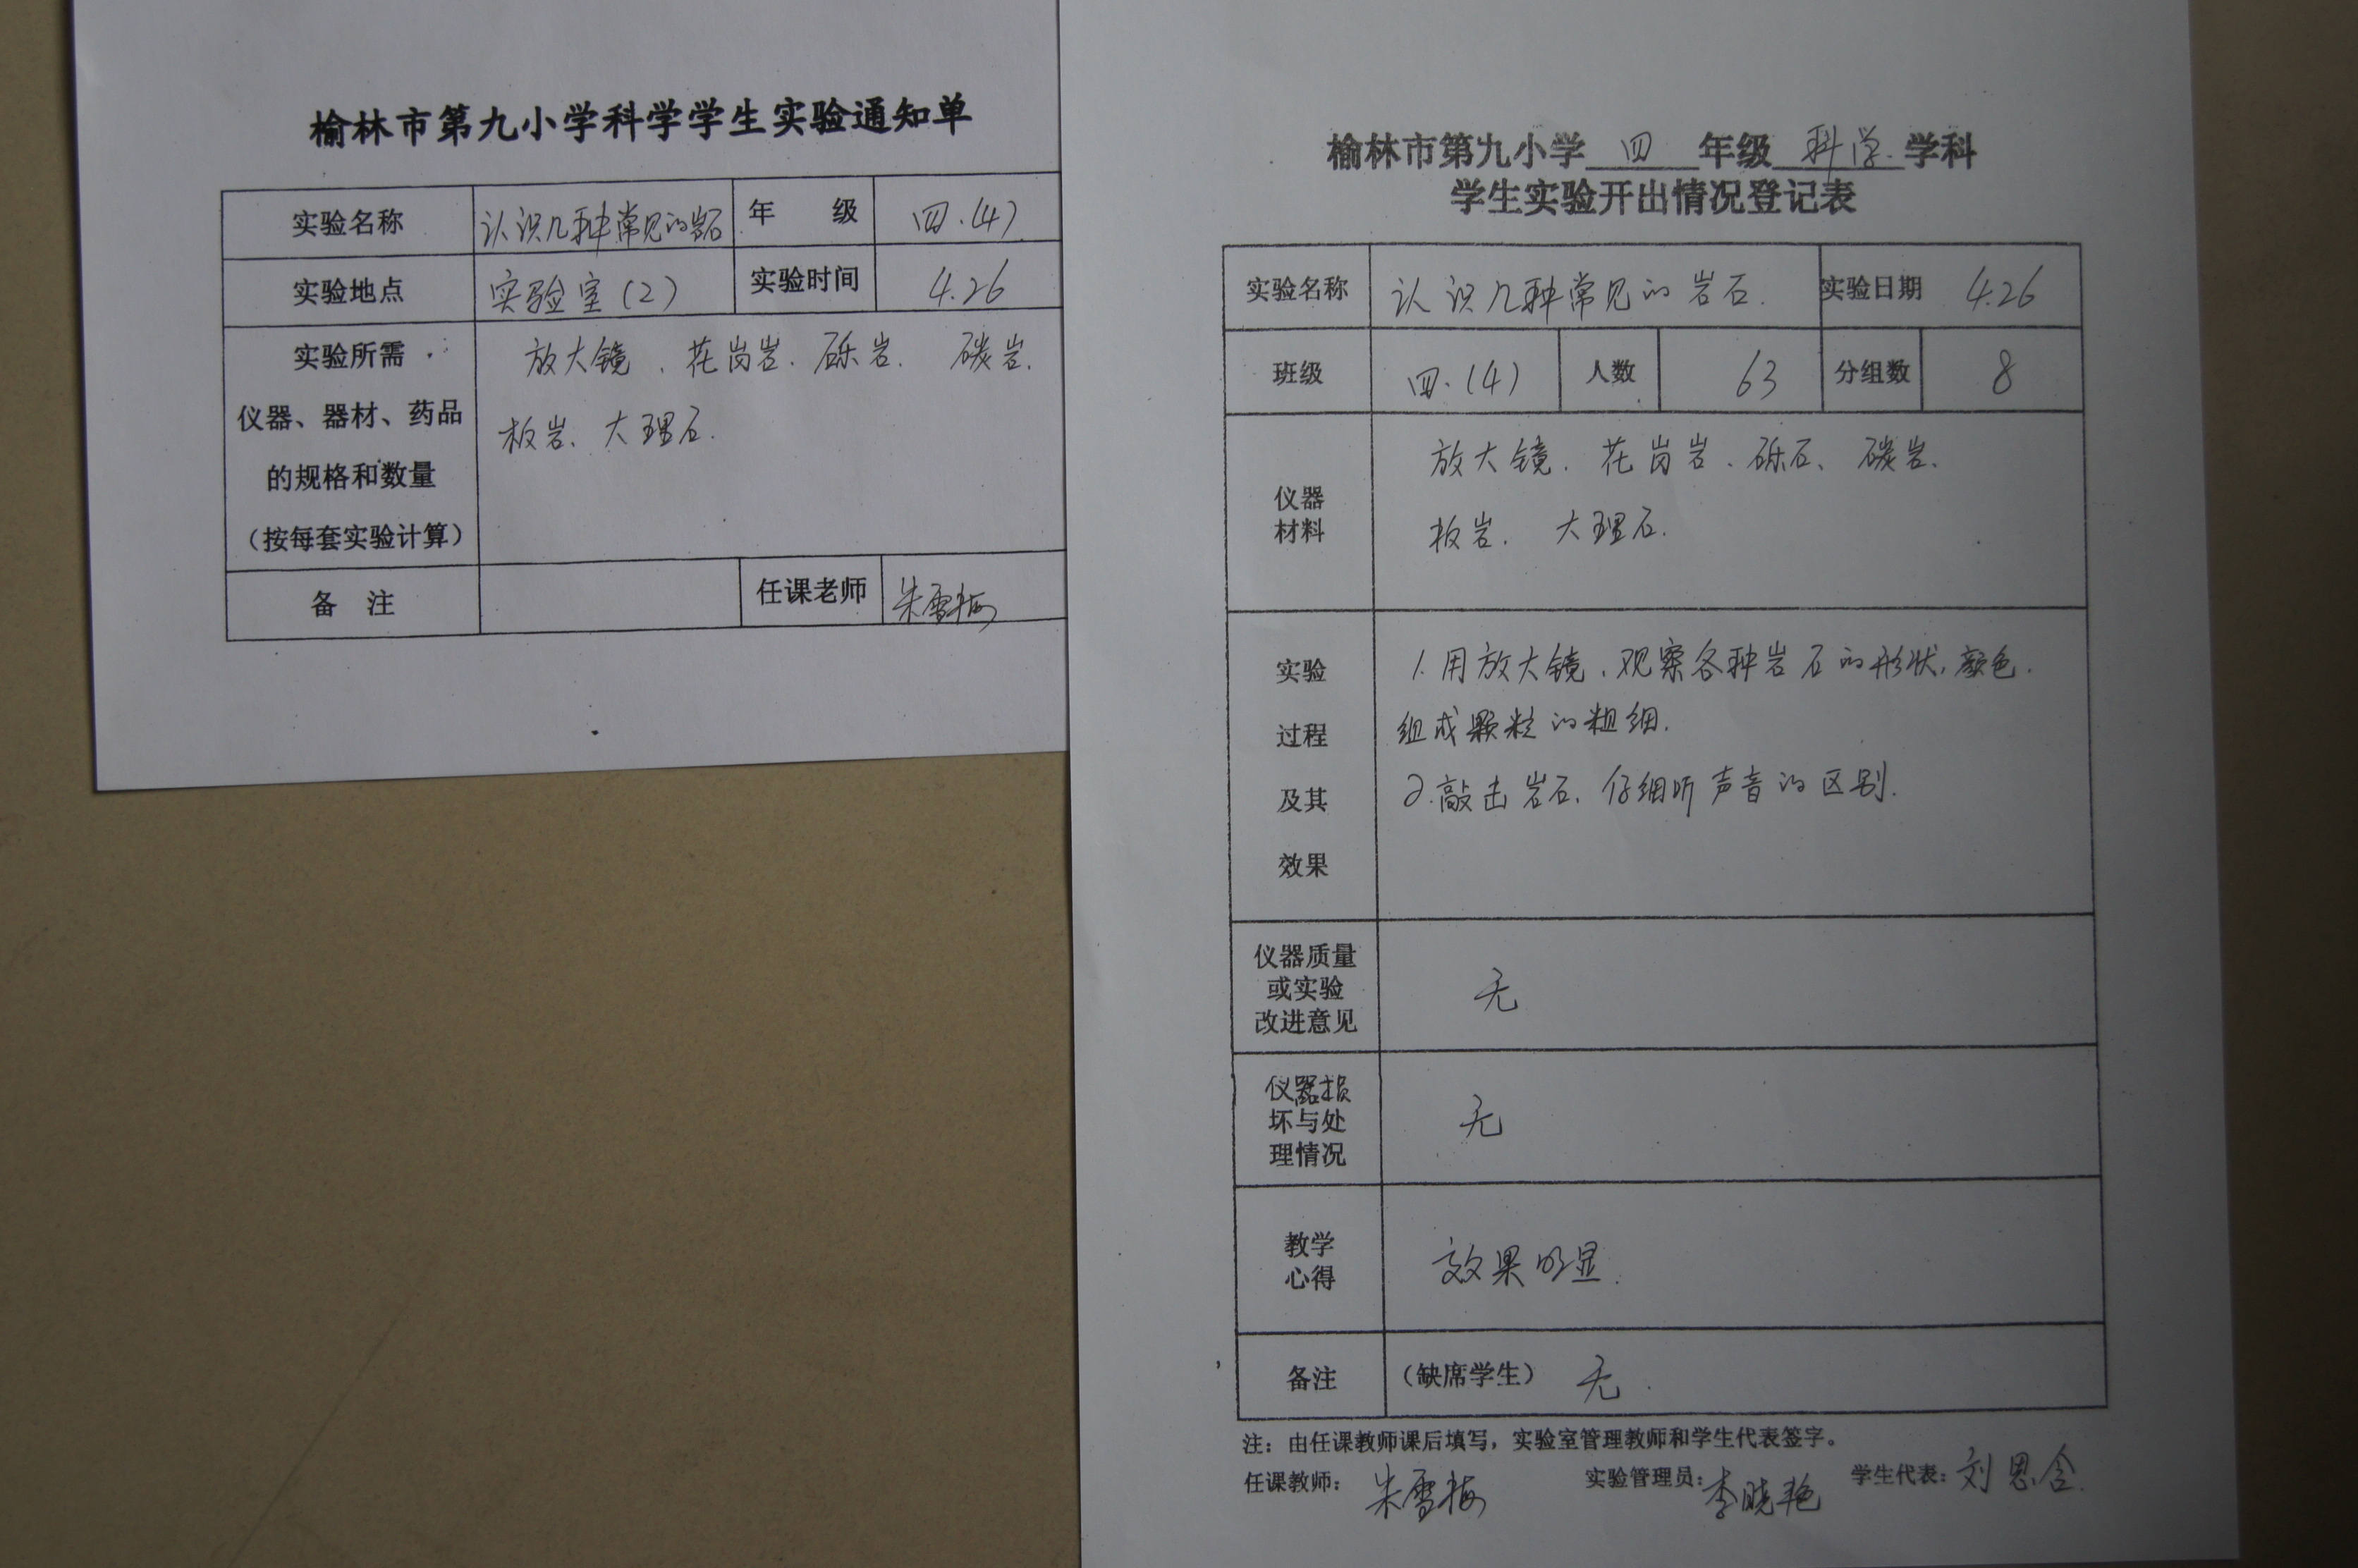 榆林市第九小学科学学生实验通知单
实验名称 认识几种常见的岩石 年 级 四.(4)
实验地点 实验室(2) 实验时间 4.26
实验所需
仪器、器材、药品
的规格和数量
(按每套实验计算)
放大镜、花岗岩、砾岩、碳岩、
板岩、大理石.
备 注 任课老师 朱雪梅
榆林市第九小学 四 年级 科学 学科
学生实验开出情况登记表
实验名称 认识几种常见的岩石. 实验日期 4.26
班级 四.(4) 人数 63 分组数 8
仪器
材料
放大镜、花岗岩、砾石、碳岩、
板岩、大理石.
实验
过程
及其
效果
1.用放大镜,观察各种岩石的形状,颜色.
组成颗粒的粗细.
2.敲击岩石、仔细听声音的区别.
仪器质量
或实验
改进意见
无
仪器损
坏与处
理情况
无
教学
心得
效果明显.
备注 (缺席学生) 无.
注:由任课教师课后填写,实验室管理教师和学生代表签字。
任课教师: 朱雪梅 实验管理员: 李晓艳 学生代表: 刘思含